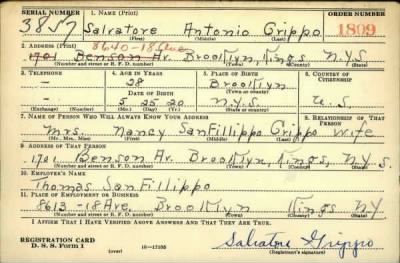 SERIAL NUMBER 1. NAME (Print) ORDER NUMBER
3857 Salvatore Antonio Grippo 1809
(First) (Middle) (Last)
2. ADDRESS (Print) 8640-18 Ave
1701 Benson Av. Brooklyn, Kings N.Y.S.
(Number and street or R. F. D. number) (Town) (County) (State)
3. TELEPHONE 4. AGE IN YEARS 5. PLACE OF BIRTH 6. COUNTRY OF CITIZENSHIP
- 28 Brooklyn
DATE OF BIRTH (Town or county)
- 5 25 20 N.Y.S. U.S.
(Exchange) (Number) (Mo.) (Day) (Yr.) (State or country)
7. NAME OF PERSON WHO WILL ALWAYS KNOW YOUR ADDRESS 8. RELATIONSHIP OF THAT PERSON
Mrs. Nancy SanFillippo Grippo wife
(Mr., Mrs., Miss) (First) (Middle) (Last)
9. ADDRESS OF THAT PERSON
1701 Benson Av. Brooklyn, Kings, N.Y.S.
(Number and street or R. F. D. number) (Town) (County) (State)
10. EMPLOYER'S NAME
Thomas SanFillippo
11. PLACE OF EMPLOYMENT OR BUSINESS
8613-18 Ave. Brooklyn Kings NY
(Number and street or R. F. D. number) (Town) (County) (State)
I AFFIRM THAT I HAVE VERIFIED ABOVE ANSWERS AND THAT THEY ARE TRUE.
REGISTRATION CARD
D. S. S. Form 1 (over) 16-17105 Salvatore Grippo
(Registrant's signature)